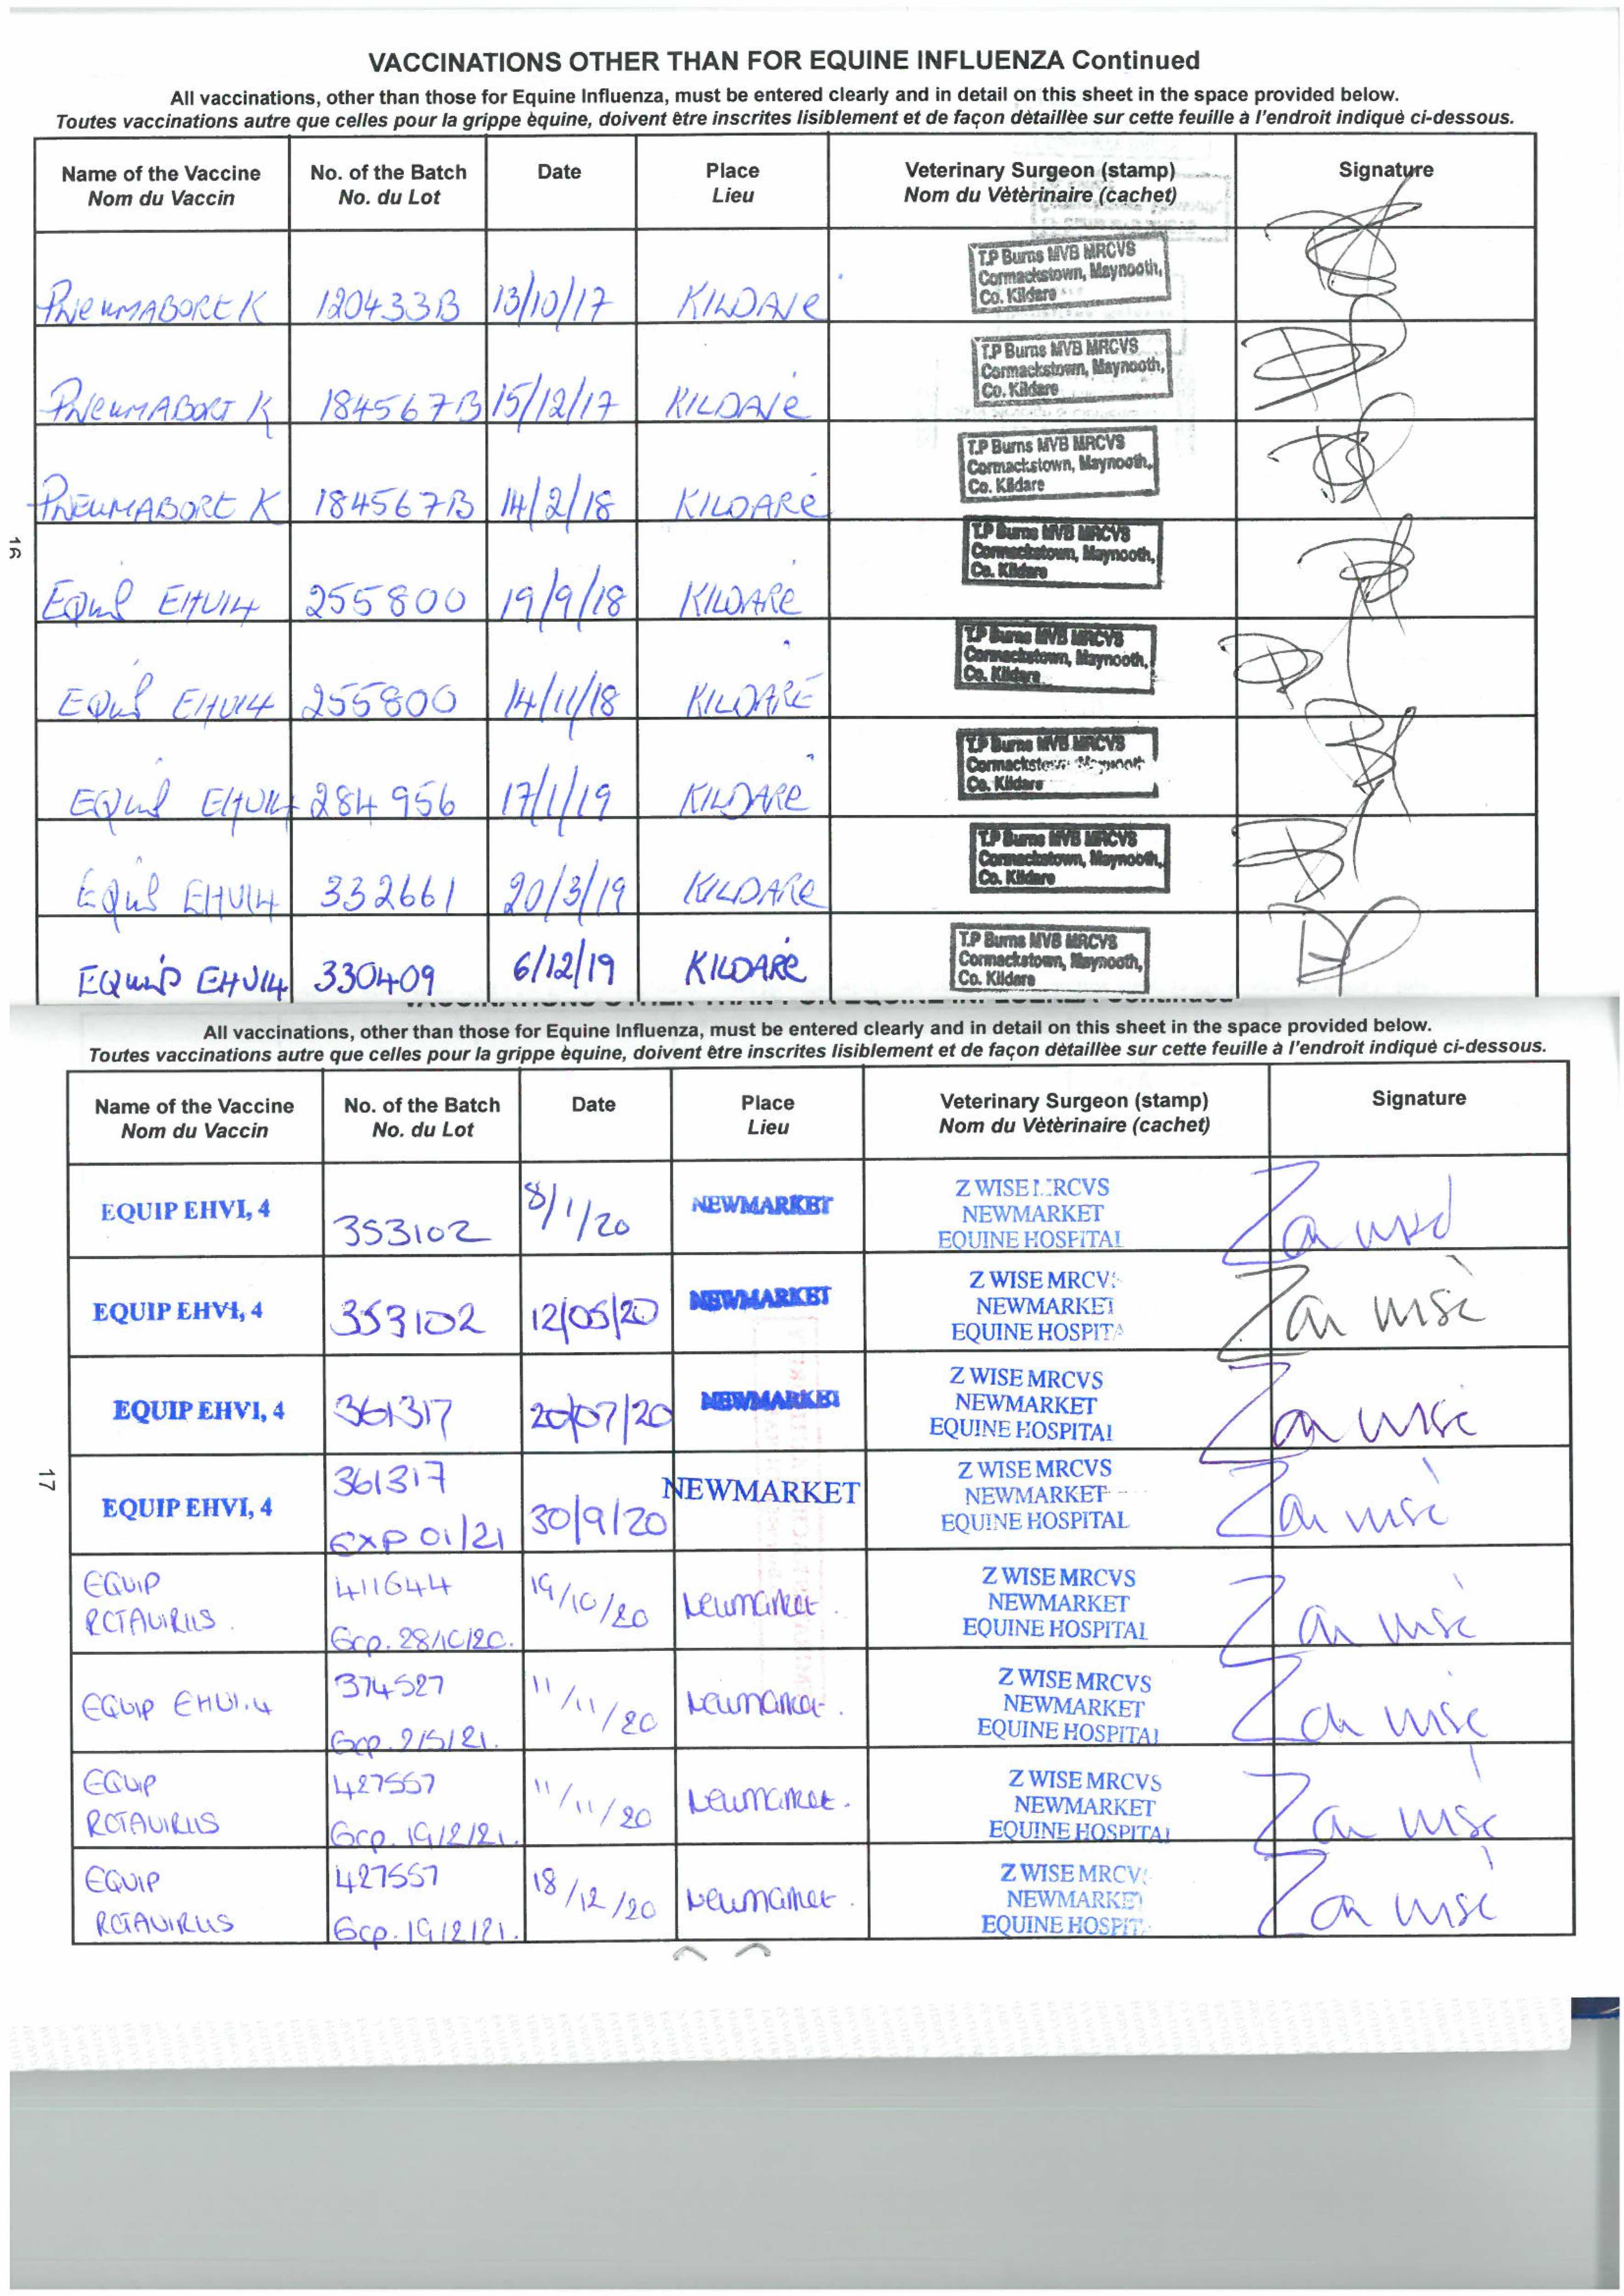 VACCINATIONS OTHER THAN FOR EQUINE INFLUENZA Continued
All vaccinations, other than those for Equine Influenza, must be entered clearly and in detail on this sheet in the space provided below.
Toutes vaccinations autre que celles pour la grippe èquine, doivent être inscrites lisiblement et de façon dètaillèe sur cette feuille à l'endroit indiquè ci-dessous.
Name of the Vaccine No. of the Batch Date Place Veterinary Surgeon (stamp) Signature
Nom du Vaccin No. du Lot Lieu Nom du Vètèrinaire (cachet)
T.P Burns MVB MRCVS
Cormackstown, Maynooth,
Co. Kildare
PNEUMABORT K 120433B 13/10/17 KILDARE
T.P Burns MVB MRCVS
Cormackstown, Maynooth,
Co. Kildare
PNEUMABORT K 184567B 15/12/17 KILDARE
T.P Burns MVB MRCVS
Cormackstown, Maynooth,
Co. Kildare
PNEUMABORT K 184567B 14/2/18 KILDARE
T.P Burns MVB MRCVS
Cormackstown, Maynooth,
Co. Kildare
EQUIP EHV14 255800 19/9/18 KILDARE
T.P Burns MVB MRCVS
Cormackstown, Maynooth,
Co. Kildare
EQUIP EHV14 255800 14/11/18 KILDARE
T.P Burns MVB MRCVS
Cormackstown, Maynooth
Co. Kildare
EQUIP EHV14 284956 17/1/19 KILDARE
T.P Burns MVB MRCVS
Cormackstown, Maynooth,
Co. Kildare
EQUIP EHV14 332661 20/3/19 KILDARE
T.P Burns MVB MRCVS
Cormackstown, Maynooth,
Co. Kildare
EQUIP EHV14 330409 6/12/19 KILDARE
16
All vaccinations, other than those for Equine Influenza, must be entered clearly and in detail on this sheet in the space provided below.
Toutes vaccinations autre que celles pour la grippe èquine, doivent être inscrites lisiblement et de façon dètaillèe sur cette feuille à l'endroit indiquè ci-dessous.
Name of the Vaccine No. of the Batch Date Place Veterinary Surgeon (stamp) Signature
Nom du Vaccin No. du Lot Lieu Nom du Vètèrinaire (cachet)
EQUIP EHVI, 4 353102 8/1/20 NEWMARKET Z WISE MRCVS
NEWMARKET
EQUINE HOSPITAL
EQUIP EHVI, 4 353102 12/05/20 NEWMARKET Z WISE MRCVS
NEWMARKET
EQUINE HOSPITA
EQUIP EHVI, 4 361317 20/07/20 NEWMARKET Z WISE MRCVS
NEWMARKET
EQUINE HOSPITAL
EQUIP EHVI, 4 361317 30/9/20 NEWMARKET Z WISE MRCVS
NEWMARKET
EXP 01/21 EQUINE HOSPITAL
EQUIP 411644 19/10/20 Newmarket. Z WISE MRCVS
ROTAVIRUS. NEWMARKET
Exp. 28/10/20. EQUINE HOSPITAL
EQUIP EHV1.4 374527 11/11/20 Newmarket. Z WISE MRCVS
NEWMARKET
Exp. 2/5/21. EQUINE HOSPITAL
EQUIP 427557 11/11/20 Newmarket. Z WISE MRCVS
ROTAVIRUS NEWMARKET
Exp. 19/2/21. EQUINE HOSPITAL
EQUIP 427557 18/12/20 Newmarket. Z WISE MRCVS
ROTAVIRUS NEWMARKET
Exp. 19/2/21. EQUINE HOSPIT
17